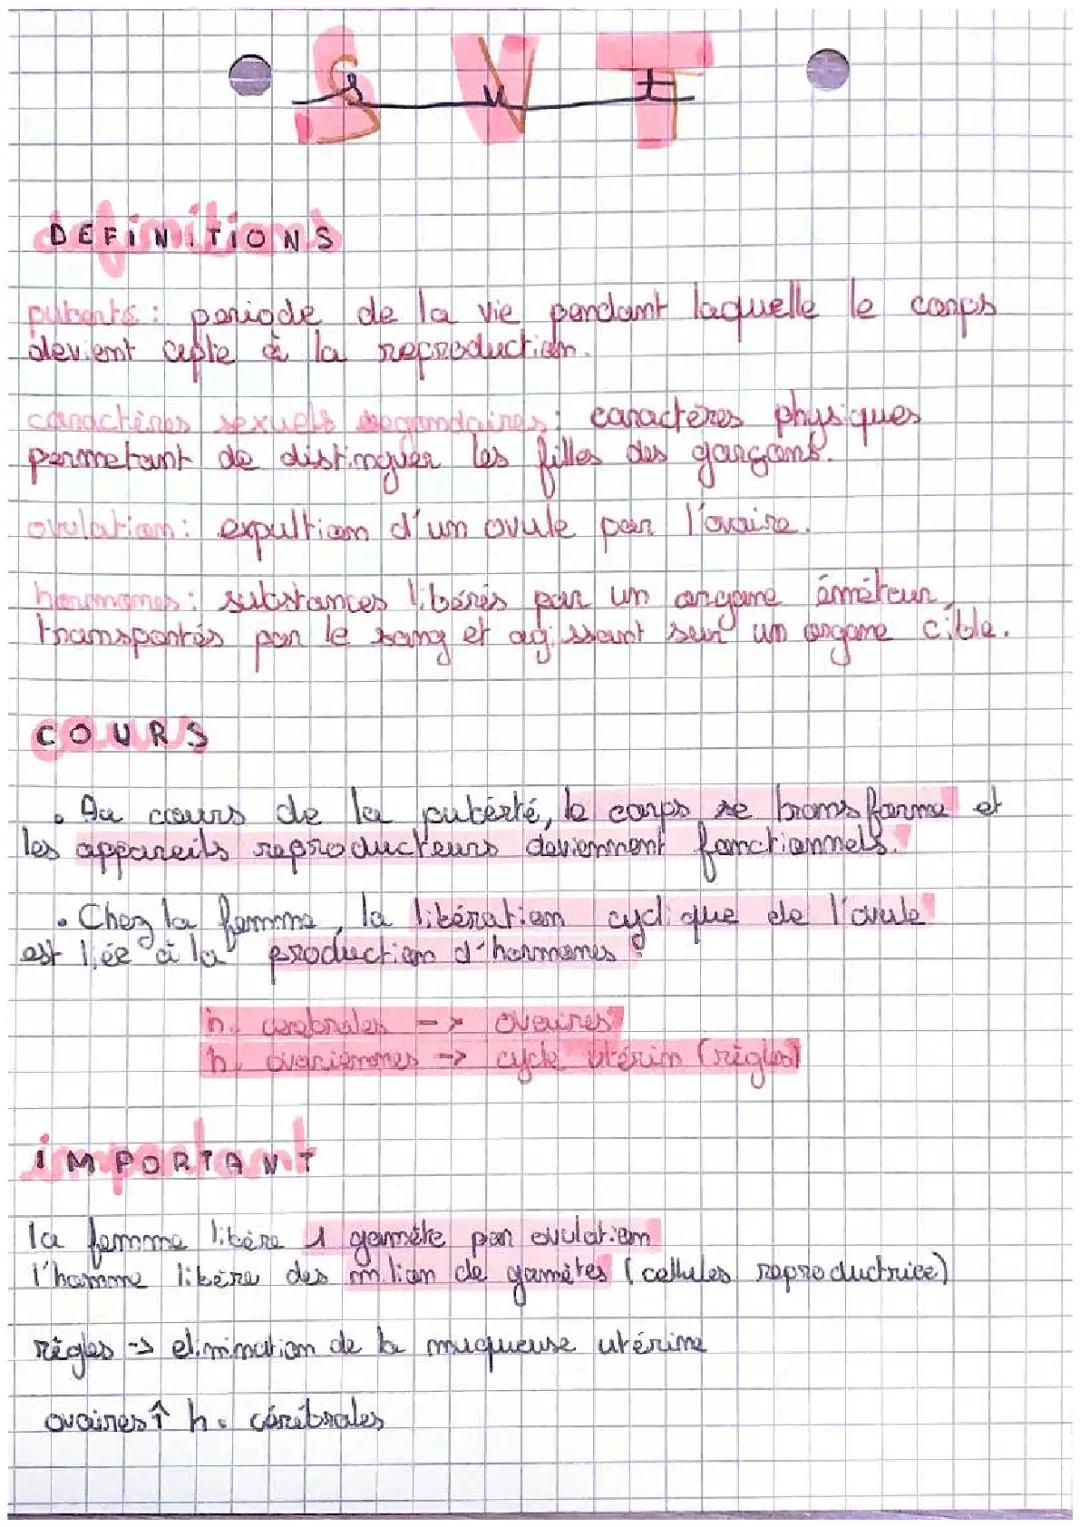 SVT
svt
DEFINITIONS
puberté : periode de la vie pendant laquelle le corps
devient apte à la reproduction.
caractères sexuels segondaires : caractères physiques
permetant de distinguer les filles des garçons.
ovulation : expultion d'un ovule par l'ovaire.
hormones : substances libérés par un organe éméteur,
transportés par le sang et agissant sur un organe cible.
COURS
• Au cours de la puberté, le corps se transforme et
les appareils reproducteurs deviennent fonctionnels.
• Chez la femme, la libération cyclique de l'ovule
est liée à la production d'hormones :
h. cerebrales -> ovaires
h. ovariennes -> cycle utérin (règles)
IMPORTANT
la femme libère 1 gamète par ovulation
l'homme libère des milion de gamètes (cellules reproductrice)
règles -> elimination de la muqueuse utérine
ovaires ↑ h. cérébrales